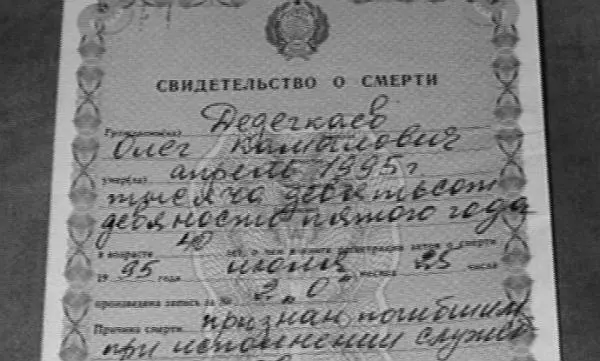 СВИДЕТЕЛЬСТВО О СМЕРТИ
Гражданин(ка) Дедегкаев
Олег Камылович
умер(ла) апрель 1995 г
тысяча девятьсот
девяносто пятого года
в возрасте 40 лет, о чем в книге регистрации актов о смерти
19 95 года июля месяца 25 числа
произведена запись за №
Причина смерти признан погибшим
при исполнении служеб